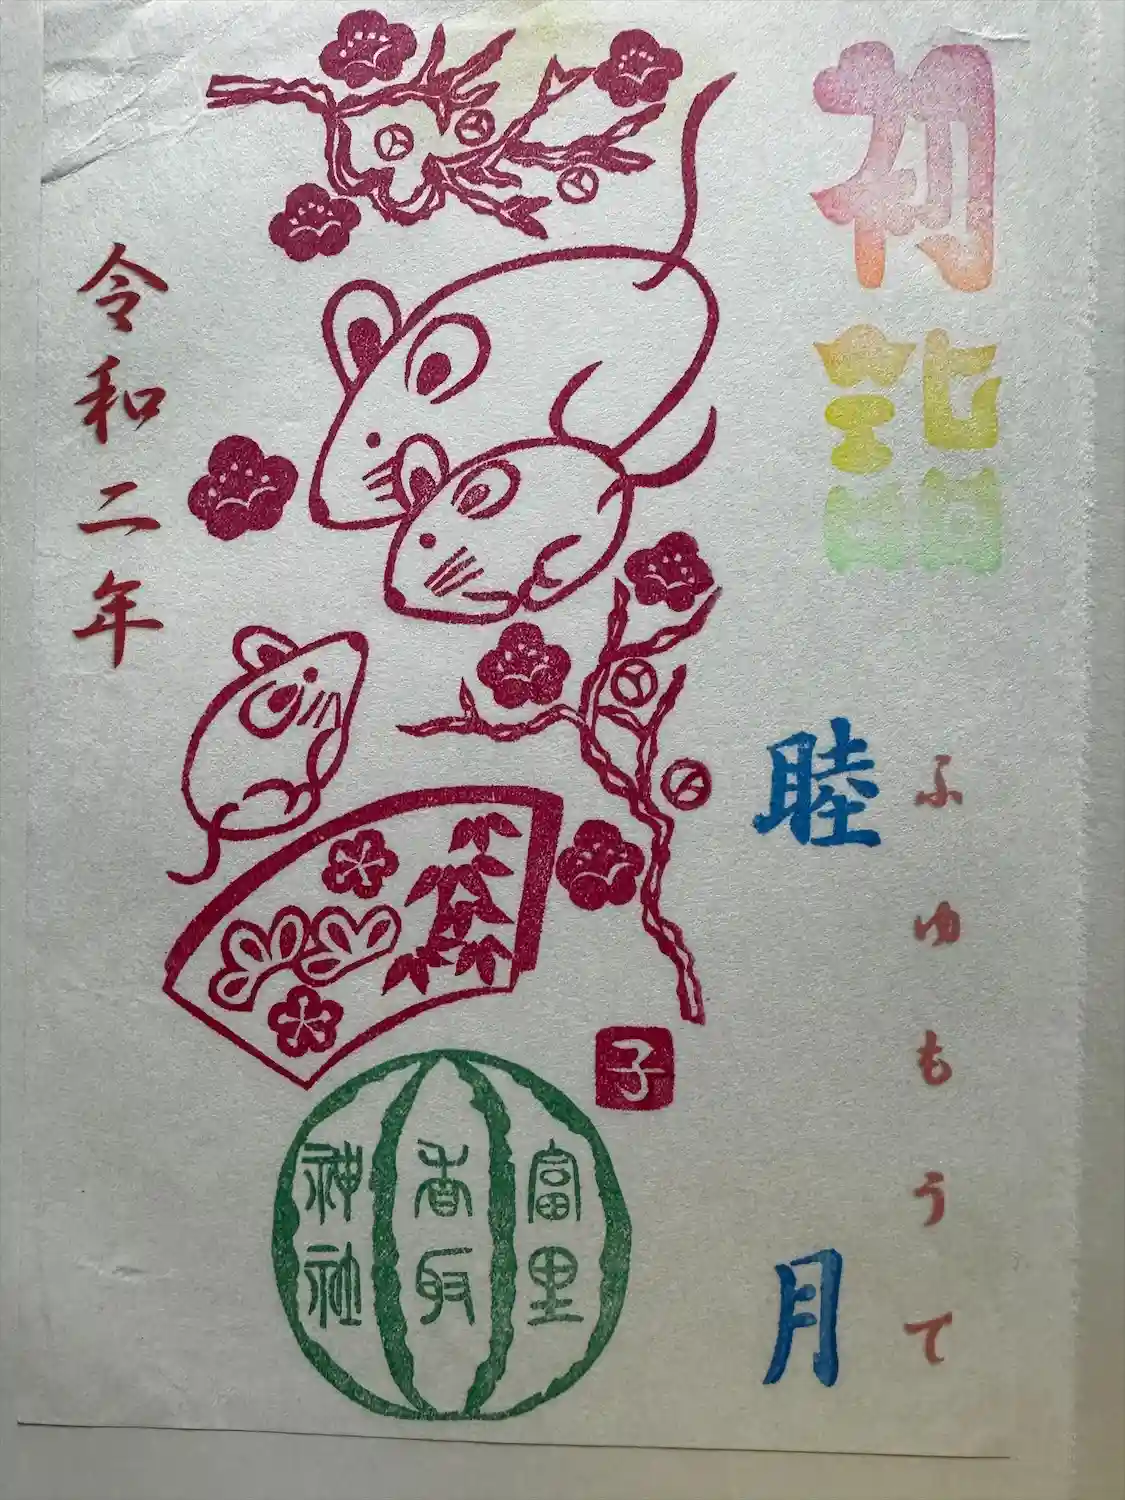 初詣
ふゆもうで
睦月
令和二年
子
富里
香取
神社